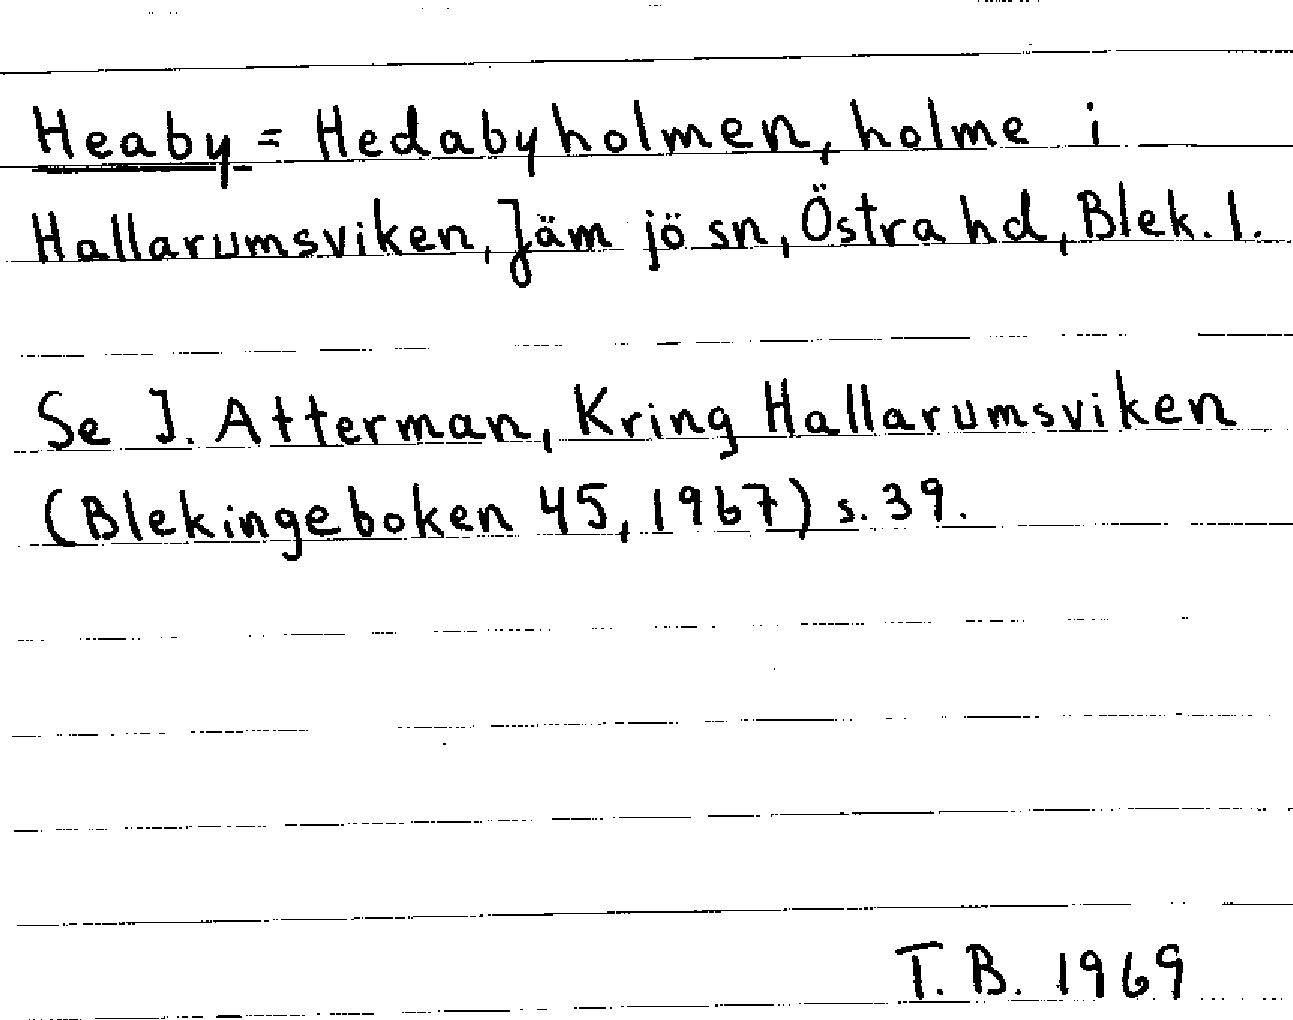 Heaby = Hedabyholmen, holme i
Hallarumsviken, Jämjö sn, Östra hd, Blek. l.
Se I. Atterman, Kring Hallarumsviken
(Blekingeboken 45, 1967) s. 39.
T. B. 1969